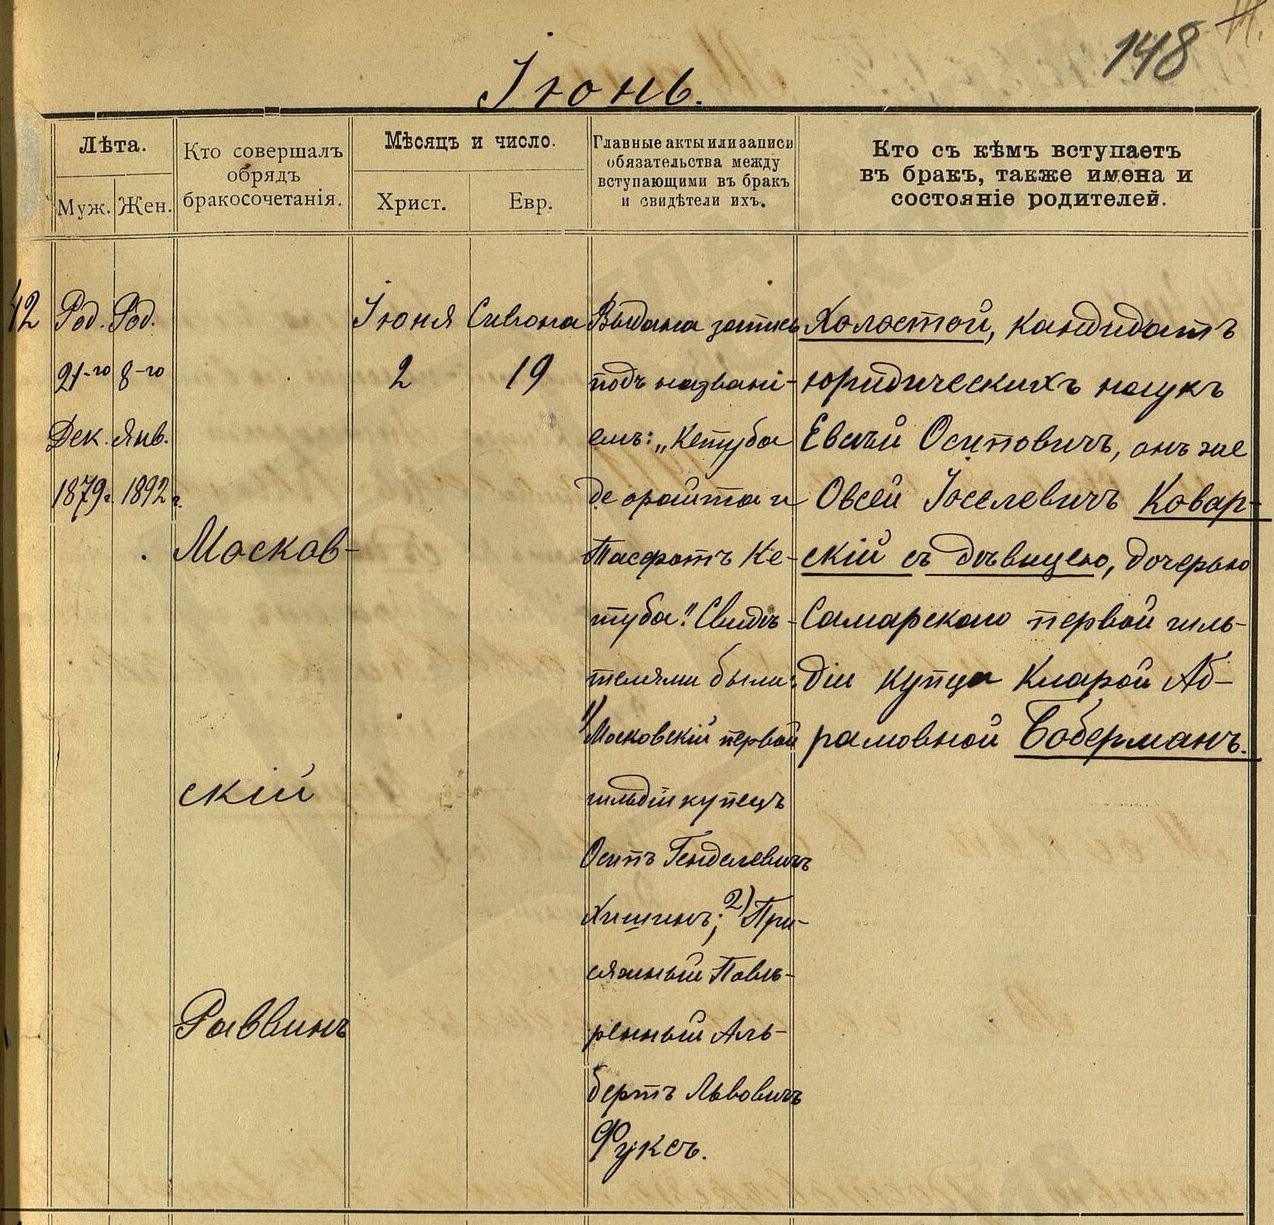 148
Іюнь.
Лѣта.
Муж. Жен.
Кто совершалъ
обрядъ
бракосочетанія.
Мѣсяцъ и число.
Христ. Евр.
Главные акты или записи
обязательства между
вступающими въ бракъ
и свидѣтели ихъ.
Кто съ кѣмъ вступаетъ
въ бракъ, также имена и
состояніе родителей.
42
Род.
21-го
Дек.
1879г.
Род.
8-го
Янв.
1892г.
Москов-
скій
Раввинъ
Іюня
2
Сивона
19
Выдана запись
подъ названі-
емъ: „Кетуба
де орайта и
Тасфотъ Ке-
туба". Свидѣ-
телями были:
1) Московскій первой
гильдіи купецъ
Осипъ Генделевичъ
Хишинъ; 2) При-
сяжный Повѣ-
ренный Аль-
бертъ Львовичъ
Фуксъ.
Холостой, кандидатъ
юридическихъ наукъ
Евсѣй Осиповичъ, онъ же
Овсей Іоселевичъ Ковар-
скій съ дѣвицею, дочерью
Самарскаго первой гиль-
діи купца Кларой Аб-
рамовной Боберманъ.